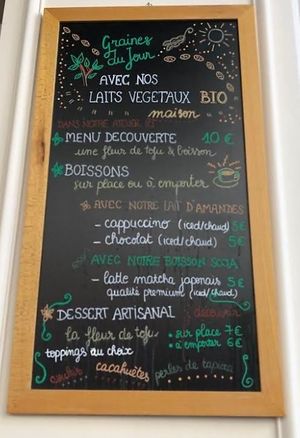 Graines
du Jour
AVEC NOS
LAITS VEGETAUX BIO
maison
DANS NOTRE ATELIER ICI
MENU DECOUVERTE 10 €
une fleur de tofu & boisson
BOISSONS
sur place ou à emporter
AVEC NOTRE LAIT D'AMANDES
- cappuccino (iced/chaud) 5€
- chocolat (iced/chaud) 5€
AVEC NOTRE BOISSON SOJA
- latte matcha japonais 5€
qualité premium (iced/chaud)
DESSERT ARTISANAL
découvrir
la fleur de tofu
* sur place 7€
* à emporter 6€
toppings au choix
cacahuètes
perles de tapioca